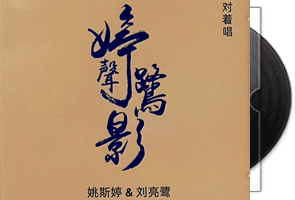 对着唱
婷聲鷺影
姚斯婷 & 刘亮鹭